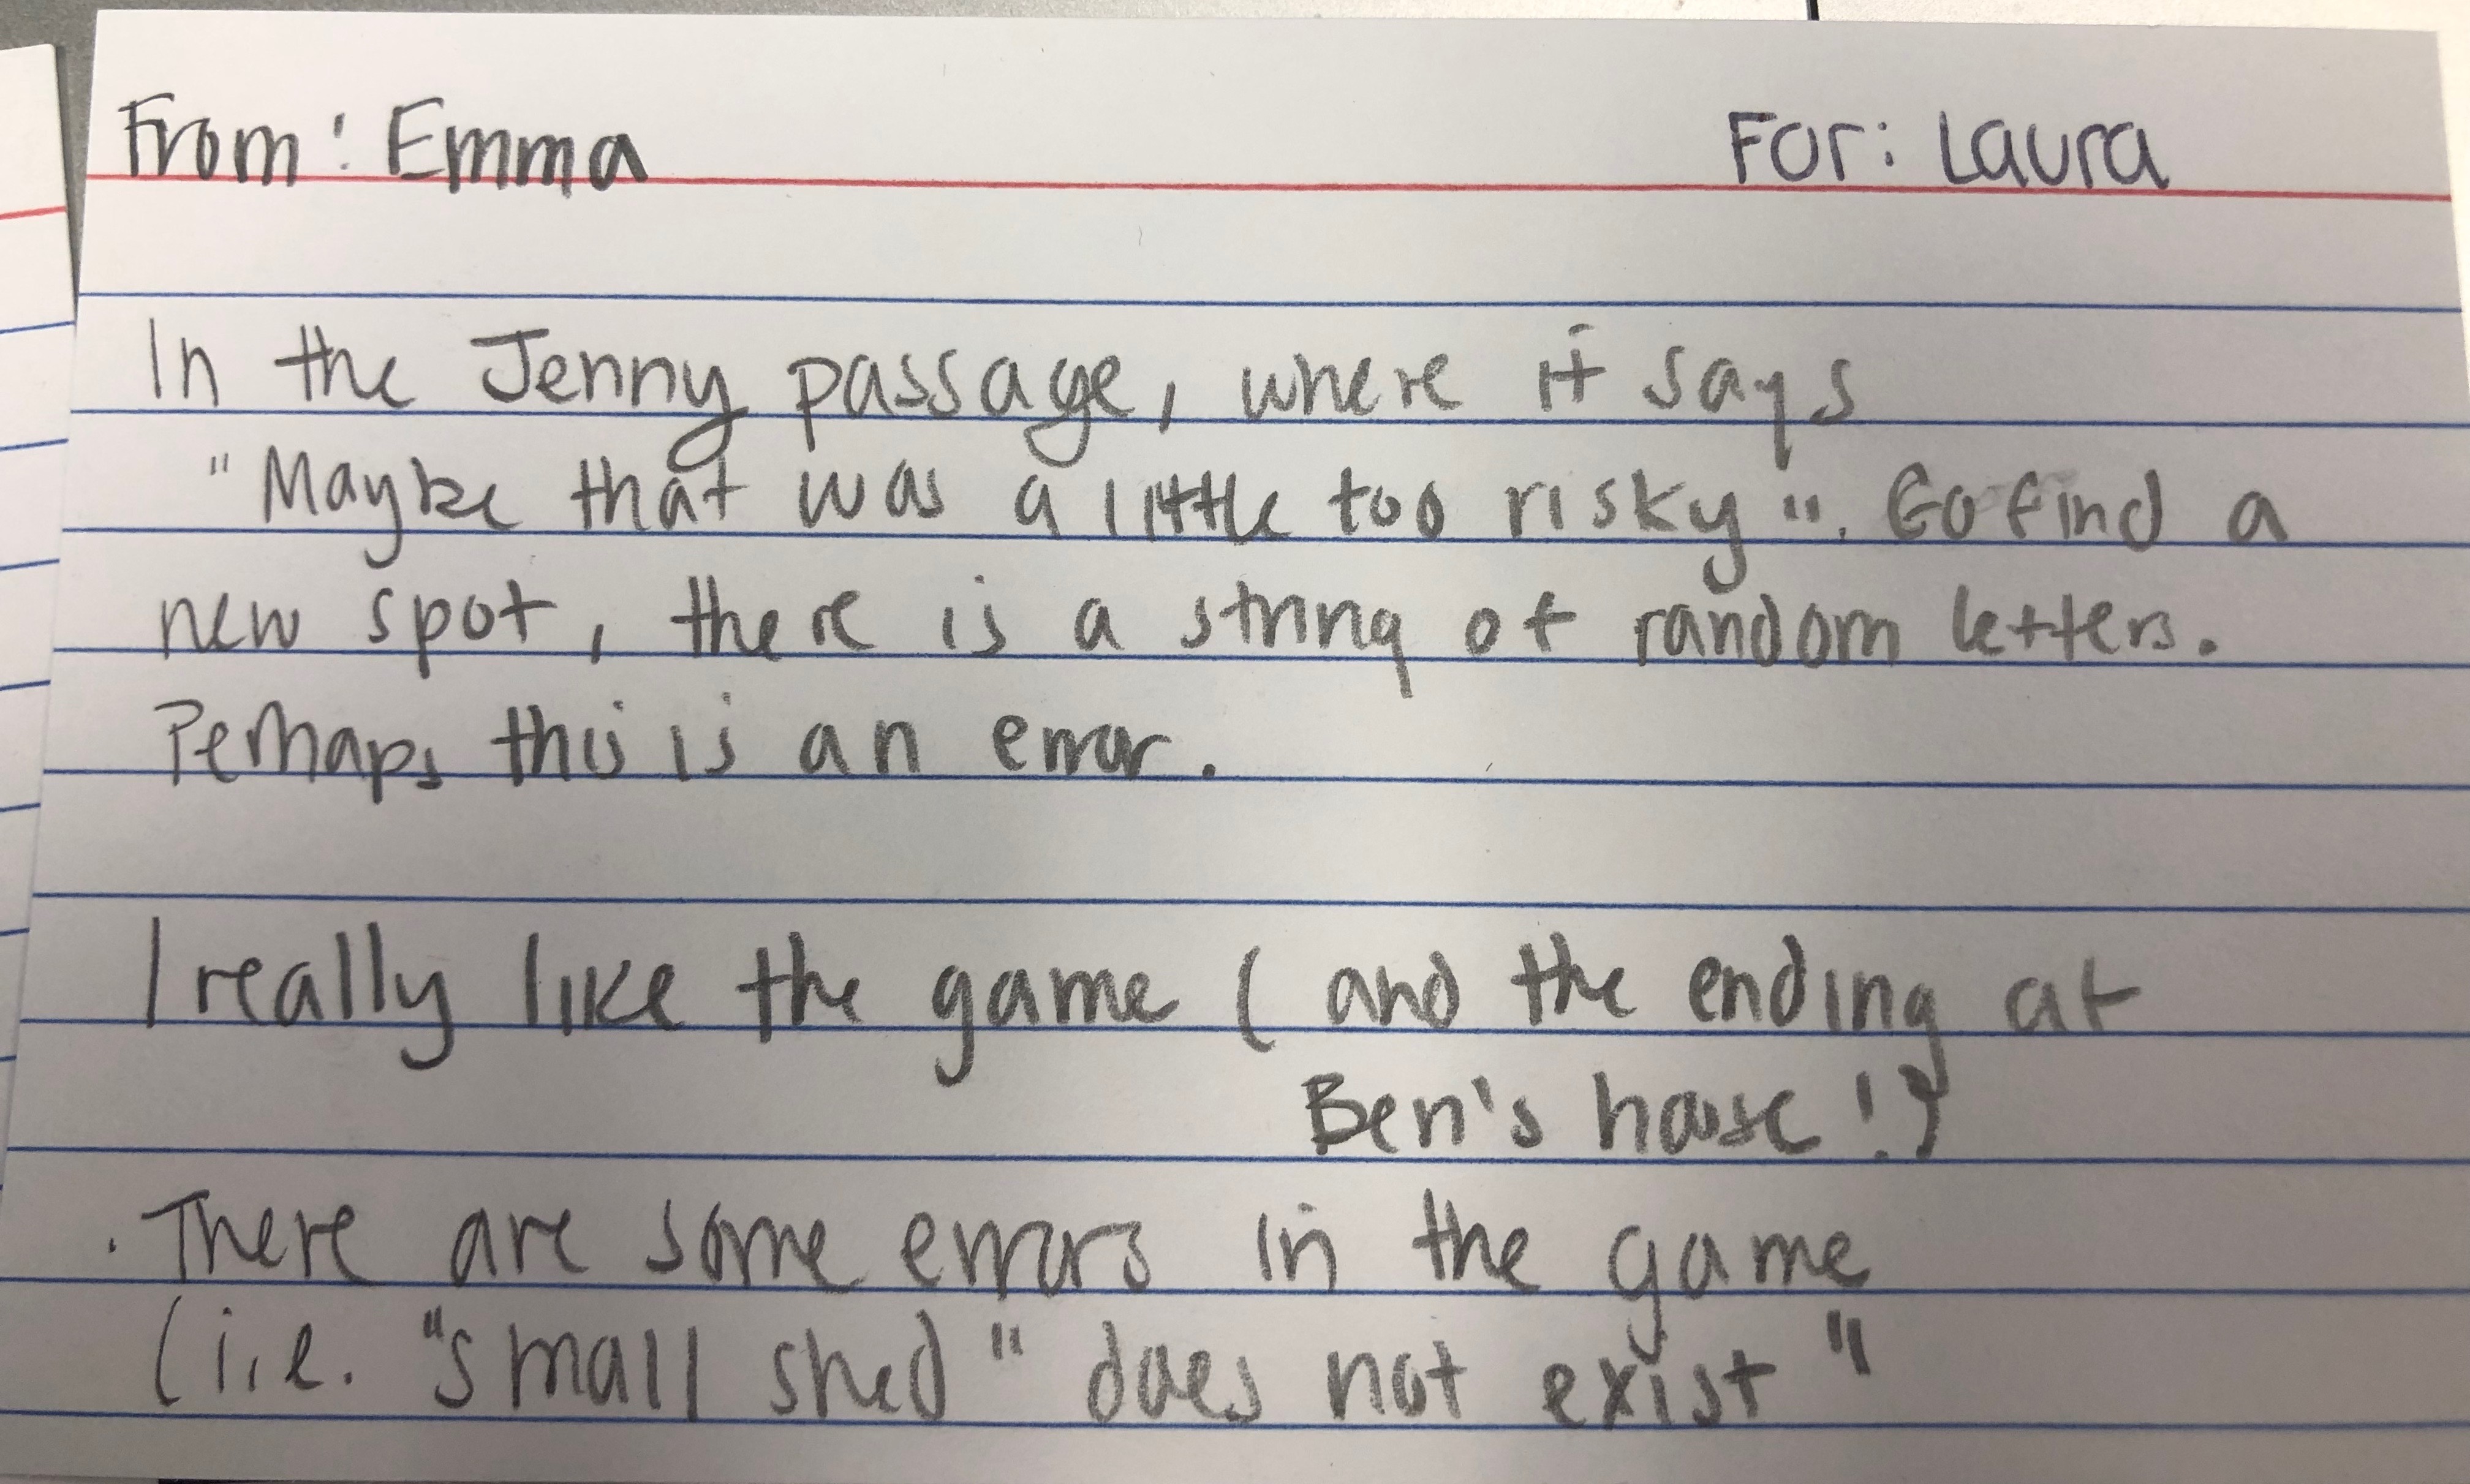 From: Emma For: Laura
In the Jenny passage, where it says
"Maybe that was a little too risky". Go find a
new spot, there is a string of random letters.
Perhaps this is an error.
I really like the game (and the ending at
Ben's house!)
. There are some errors in the game
(i.e. "small shed" does not exist"